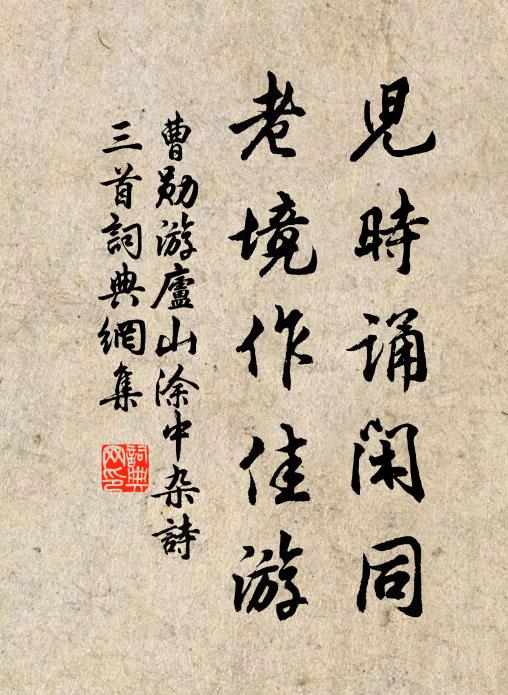 兒時誦閑同
老境作佳游
曹勛游廬山涂中杂詩
三首詞典網集
詞典网印